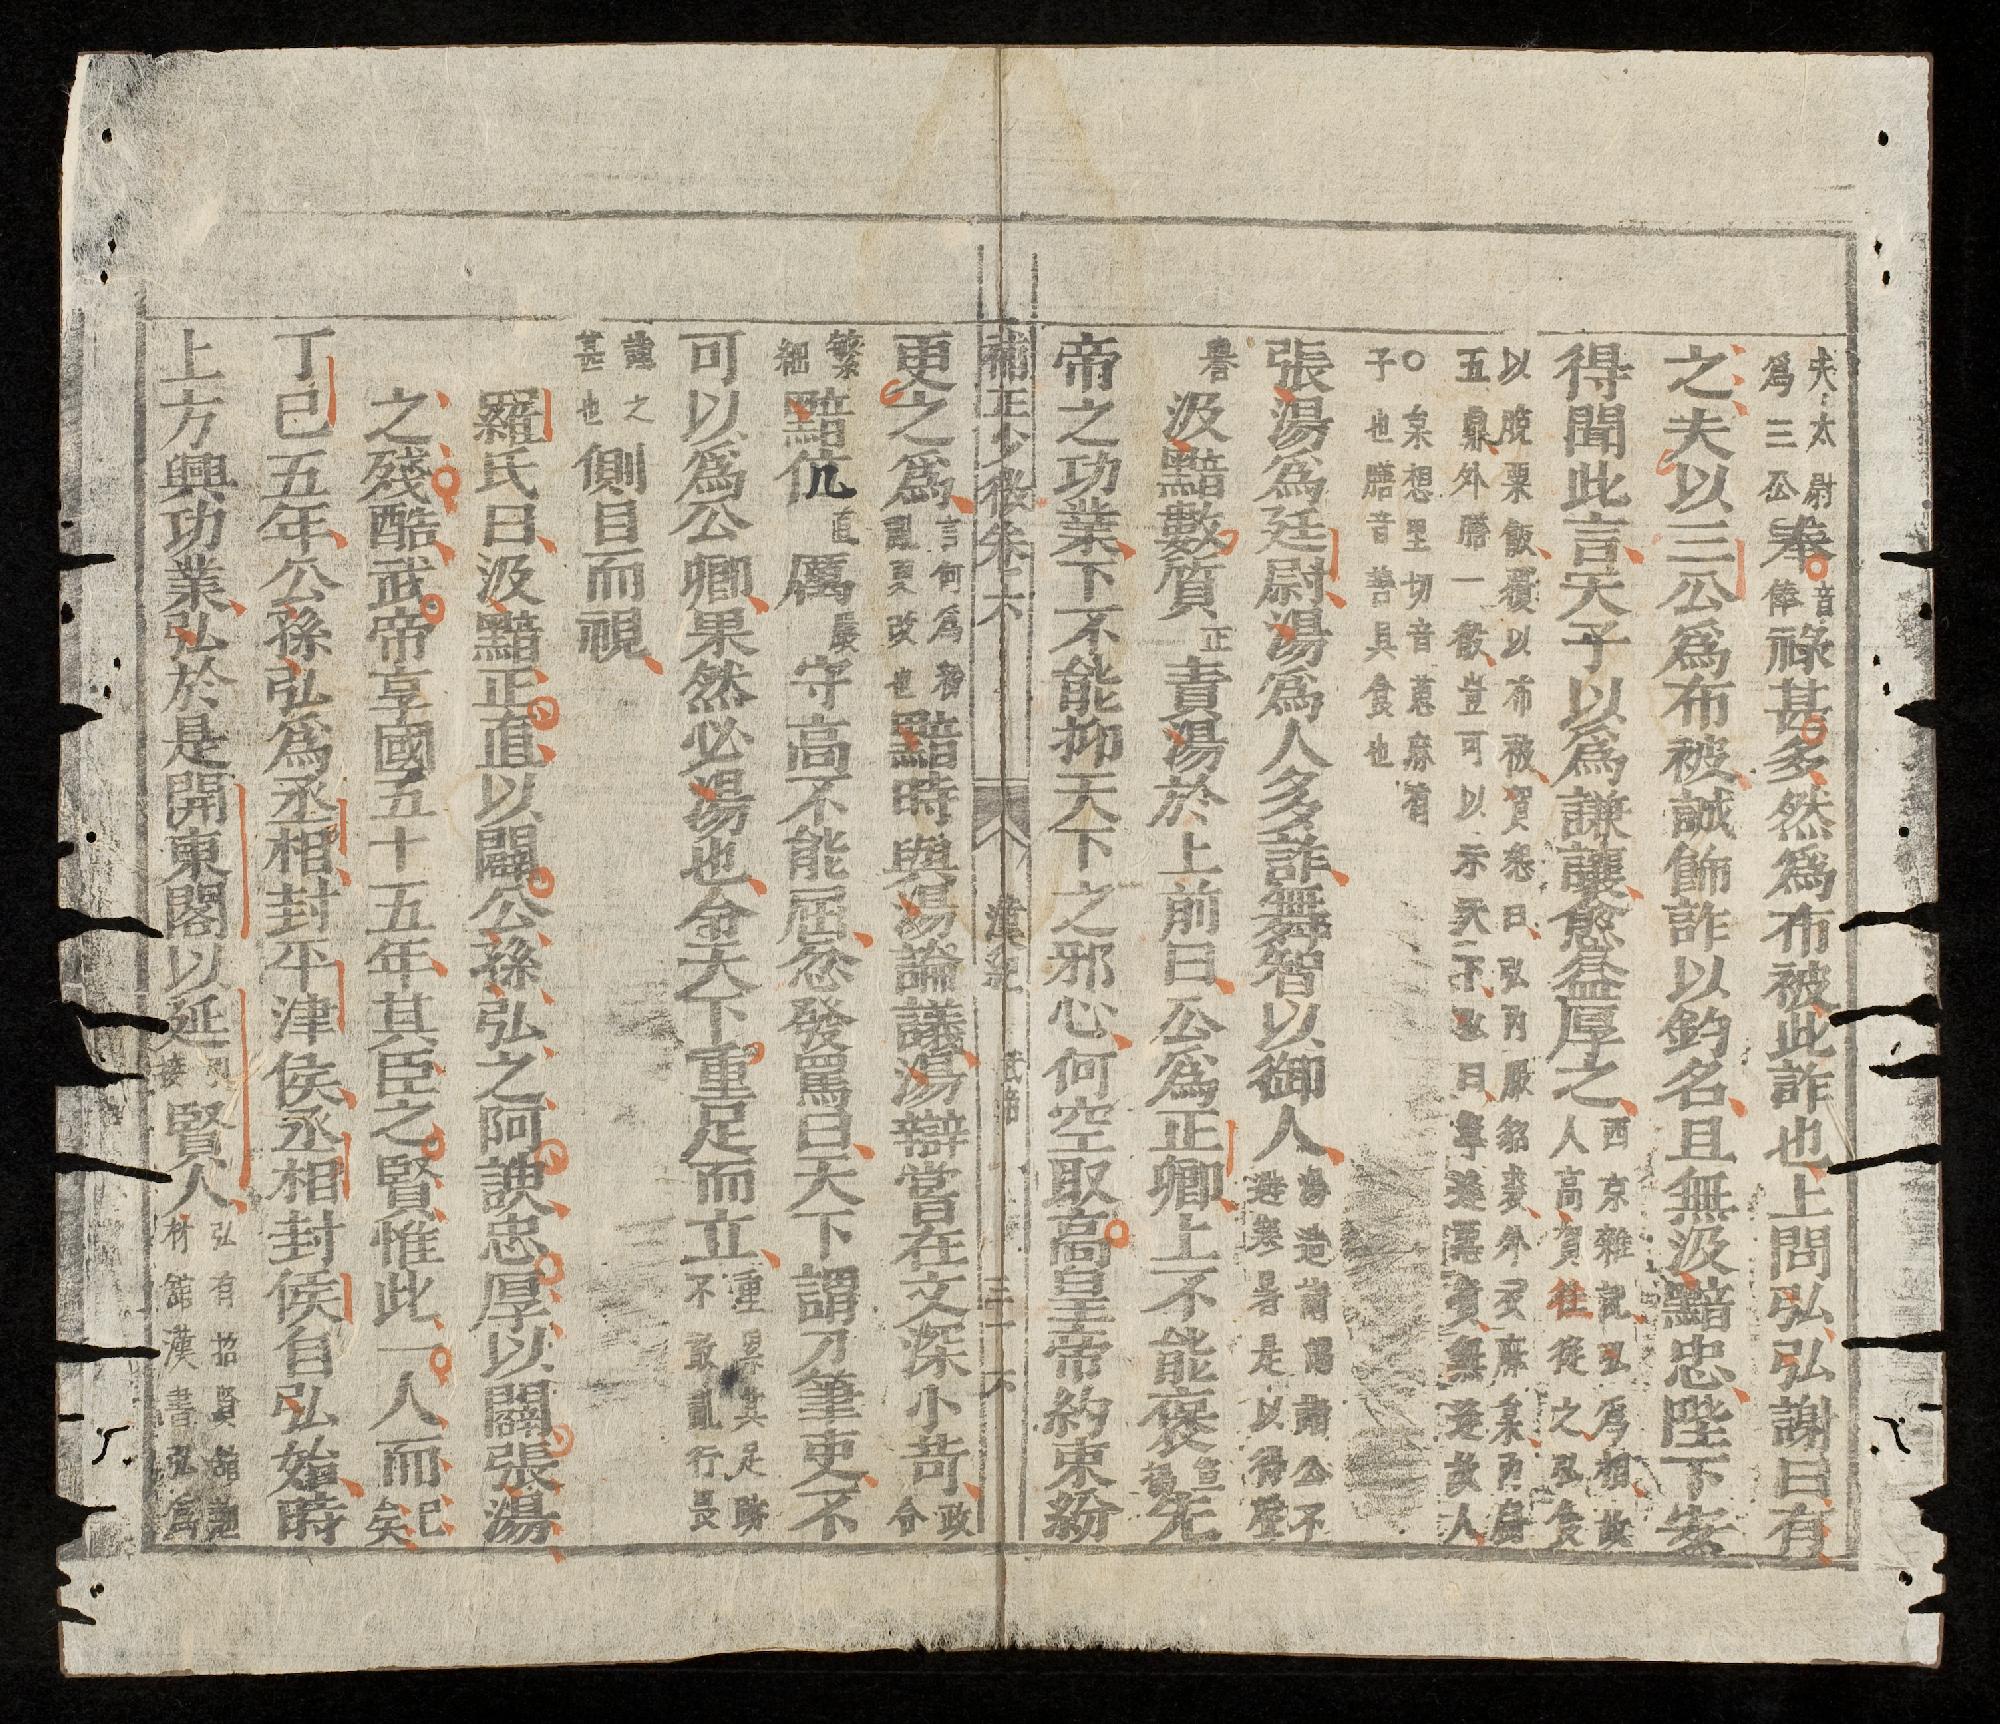 夫太尉為三公奉音俸祿甚多然為布被此詐也上問弘弘謝曰有
之夫以三公為布被誠飾詐以釣名且無汲黯忠陛下安
得聞此言天子以為謙讓愈益厚之西京雜記弘為相故人高賀往從之弘食
以脫粟飯覆以布被賀怨曰弘內服貂裘外衣麻枲內廚五鼎外膳一殽豈可以示天下於是曰寧逢惡賓無逢故人
○枲想里切音葸麻有子也膳音善具食也
張湯為廷尉湯為人多詐舞智以御人湯造請諸公不避寒暑是以得聲
譽汲黯數質正責湯於上前曰公為正卿上不能褒宣揚先
帝之功業下不能抑天下之邪心何空取高皇帝約束紛
補正少微 漢紀 武帝
更之為言何為紛亂更改也黯時與湯論議湯辯嘗在文深小苛政令
繁細黯伉直厲嚴守高不能屈忿發罵曰天下謂刀筆吏不
可以為公卿果然必湯也令天下重足而立重累其足不敢亂行畏
謹之甚也側目而視
羅氏曰汲黯正直以闢公孫弘之阿諛忠厚以闢張湯
之殘酷武帝享國五十五年其臣之賢惟此一人而已矣
丁巳五年公孫弘為丞相封平津侯丞相封侯自弘始時
上方興功業弘於是開東閣以延接賢人弘有招賢館材館漢書弘為